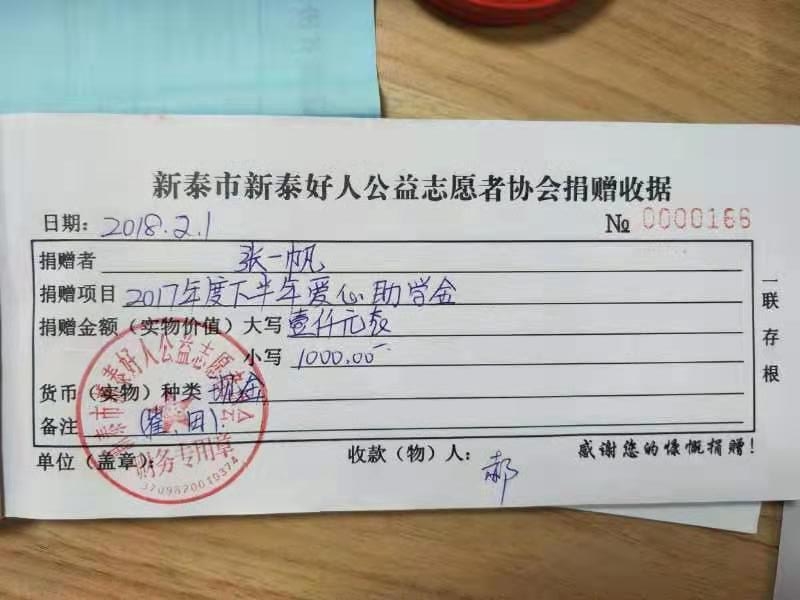 新泰市新泰好人公益志愿者协会捐赠收据
日期: 2018.2.1
№ 0000166
捐赠者 张一帆
捐赠项目 2017年度下半年爱心助学金
捐赠金额(实物价值)大写 壹仟元整
小写 1000.00
货币(实物)种类 现金
备注 (崔、田)
单位(盖章): 收款(物)人: 郝
感谢您的慷慨捐赠!
一联存根
新泰市新泰好人公益志愿者协会
财务专用章